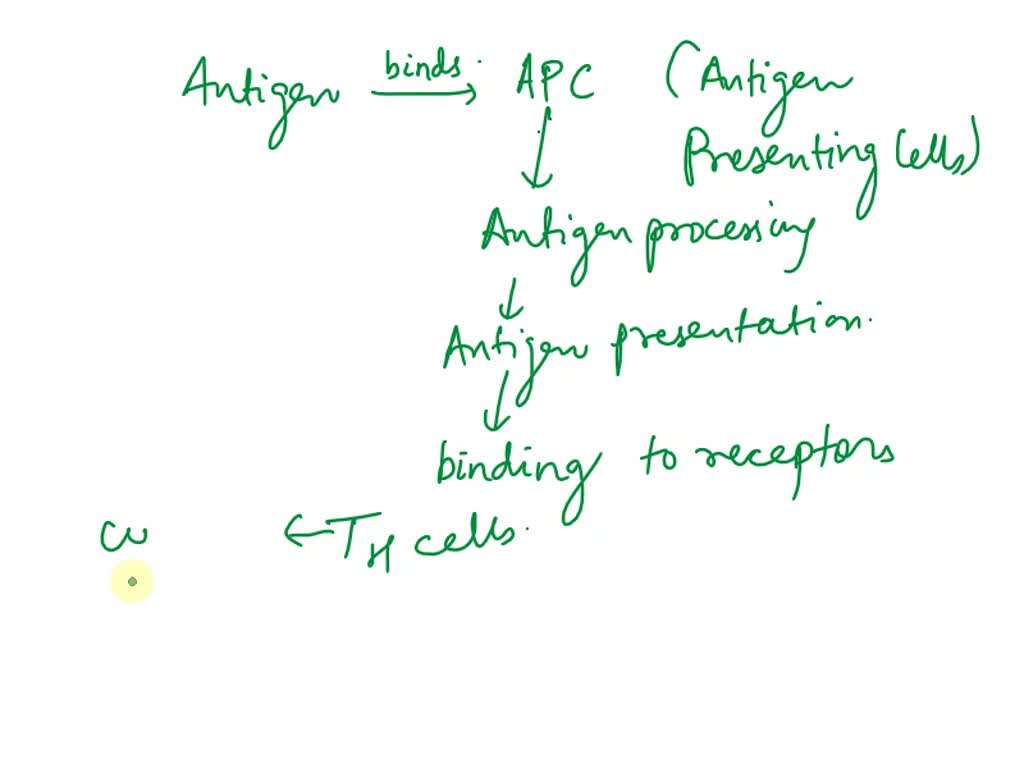 Antigen binds. → APC (Antigen
Presenting Cells)
↓
Antigen processing
↓
Antigen presentation.
↓
binding to receptors
← TH cells.